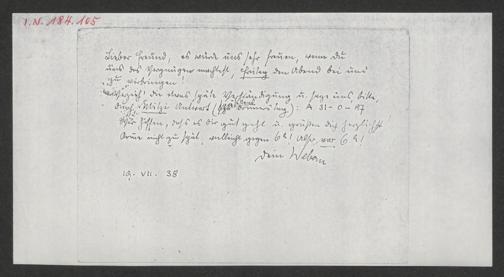 I.N. 184.105
Lieber Freund, es würde uns sehr freuen, wenn du
uns das Vergnügen machtest, Freitag den Abend bei uns
zu verbringen!
Verzeih' die etwas späte Verständigung u. sage uns bitte,
durch Mitzi Antwort (Donnerstag): A 31-0-17
Wir hoffen, dass es Dir gut geht u. grüßen dich herzlichst
Komme nicht zu spät, vielleicht gegen 6h! Also, 6h!
Dein Webern
19. VII. 38